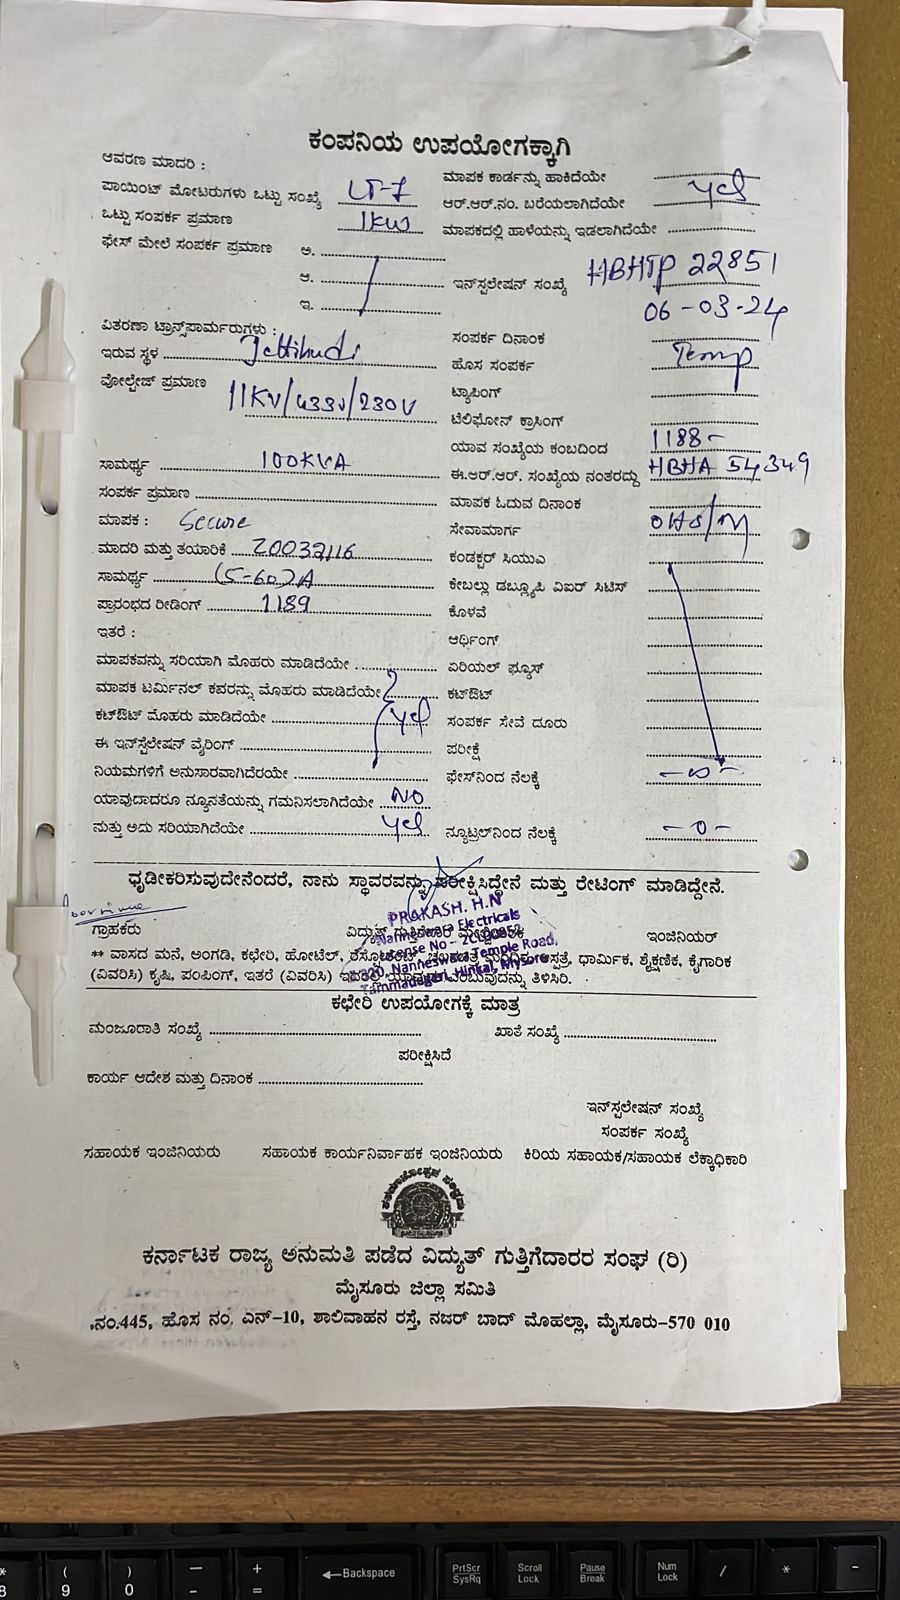 ಕಂಪನಿಯ ಉಪಯೋಗಕ್ಕಾಗಿ
ಆವರಣ ಮಾದರಿ :
ಮಾಪಕ ಕಾರ್ಡನ್ನು ಹಾಕಿದೆಯೇ
ಪಾಯಿಂಟ್ ಮೋಟರುಗಳು ಒಟ್ಟು ಸಂಖ್ಯೆ LT-7
ಆರ್.ಆರ್.ನಂ. ಬರೆಯಲಾಗಿದೆಯೇ yes
ಒಟ್ಟು ಸಂಪರ್ಕ ಪ್ರಮಾಣ 1KW
ಮಾಪಕದಲ್ಲಿ ಹಾಳೆಯನ್ನು ಇಡಲಾಗಿದೆಯೇ
ಫೇಸ್ ಮೇಲೆ ಸಂಪರ್ಕ ಪ್ರಮಾಣ ಅ.
ಆ.
ಇನ್‌ಸ್ಟಲೇಷನ್ ಸಂಖ್ಯೆ HBHTP 22851
ಇ.
06-03-24
ವಿತರಣಾ ಟ್ರಾನ್ಸ್‌ಪಾರ್ಮರುಗಳು :
ಸಂಪರ್ಕ ದಿನಾಂಕ
ಇರುವ ಸ್ಥಳ Jettihudi
ಹೊಸ ಸಂಪರ್ಕ Temp
ವೋಲ್ಟೇಜ್ ಪ್ರಮಾಣ 11KV/433V/230V
ಟ್ಯಾಪಿಂಗ್
ಟೆಲಿಫೋನ್ ಕ್ರಾಸಿಂಗ್
ಯಾವ ಸಂಖ್ಯೆಯ ಕಂಬದಿಂದ 1188-
ಸಾಮರ್ಥ್ಯ 100KVA
ಈ.ಆರ್.ಆರ್. ಸಂಖ್ಯೆಯ ನಂತರದ್ದು HBHA 54349
ಸಂಪರ್ಕ ಪ್ರಮಾಣ
ಮಾಪಕ ಓದುವ ದಿನಾಂಕ
ಮಾಪಕ : Secure
ಸೇವಾಮಾರ್ಗ
ಮಾದರಿ ಮತ್ತು ತಯಾರಿಕೆ 20032116
ಕಂಡಕ್ಟರ್ ಸಿಯುಎ
ಸಾಮರ್ಥ್ಯ (5-60)A
ಕೇಬಲ್ಲು ಡಬ್ಲ್ಯೂಪಿ ವಿಐರ್ ಸಿಟಿಸ್
ಪ್ರಾರಂಭದ ರೀಡಿಂಗ್ 1189
ಕೊಳವೆ
ಇತರೆ :
ಆರ್ಥಿಂಗ್
ಮಾಪಕವನ್ನು ಸರಿಯಾಗಿ ಮೊಹರು ಮಾಡಿದೆಯೇ
ಏರಿಯಲ್ ಫ್ಯೂಸ್
ಮಾಪಕ ಟರ್ಮಿನಲ್ ಕವರನ್ನು ಮೊಹರು ಮಾಡಿದೆಯೇ
ಕಟ್‌ಔಟ್
ಕಟ್‌ಔಟ್ ಮೊಹರು ಮಾಡಿದೆಯೇ yes
ಸಂಪರ್ಕ ಸೇವೆ ದೂರು
ಈ ಇನ್‌ಸ್ಟೆಲೇಷನ್ ವೈರಿಂಗ್
ಪರೀಕ್ಷೆ
ನಿಯಮಗಳಿಗೆ ಅನುಸಾರವಾಗಿದೆರಯೇ
ಫೇಸ್‌ನಿಂದ ನೆಲಕ್ಕೆ -∞-
ಯಾವುದಾದರೂ ನ್ಯೂನತೆಯನ್ನು ಗಮನಿಸಲಾಗಿದೆಯೇ NO
ಮತ್ತು ಅದು ಸರಿಯಾಗಿದೆಯೇ yes
ನ್ಯೂಟ್ರಲ್‌ನಿಂದ ನೆಲಕ್ಕೆ -0-
ಧೃಡೀಕರಿಸುವುದೇನೆಂದರೆ, ನಾನು ಸ್ಥಾವರವನ್ನು ಪರೀಕ್ಷಿಸಿದ್ದೇನೆ ಮತ್ತು ರೇಟಿಂಗ್ ಮಾಡಿದ್ದೇನೆ.
PRAKASH. H.N
Electricals
License No -
Nanneswara Temple Road,
Hinkal, Mysore
ಗ್ರಾಹಕರು
ವಿದ್ಯುತ್ ಗುತ್ತಿಗೆದಾರ
ಇಂಜಿನಿಯರ್
** ವಾಸದ ಮನೆ, ಅಂಗಡಿ, ಕಛೇರಿ, ಹೋಟೆಲ್, ರೆಸ್ಟೋರೆಂಟ್, ಆಸ್ಪತ್ರೆ, ಧಾರ್ಮಿಕ, ಶೈಕ್ಷಣಿಕ, ಕೈಗಾರಿಕ
(ವಿವರಿಸಿ) ಕೃಷಿ, ಪಂಪಿಂಗ್, ಇತರೆ (ವಿವರಿಸಿ) ಇದರಲ್ಲಿ ಯಾವುದು ಎಂಬುವುದನ್ನು ತಿಳಿಸಿರಿ.
ಕಛೇರಿ ಉಪಯೋಗಕ್ಕೆ ಮಾತ್ರ
ಮಂಜೂರಾತಿ ಸಂಖ್ಯೆ
ಖಾತೆ ಸಂಖ್ಯೆ
ಪರೀಕ್ಷಿಸಿದೆ
ಕಾರ್ಯ ಆದೇಶ ಮತ್ತು ದಿನಾಂಕ
ಇನ್‌ಸ್ಟಲೇಷನ್ ಸಂಖ್ಯೆ
ಸಂಪರ್ಕ ಸಂಖ್ಯೆ
ಸಹಾಯಕ ಇಂಜಿನಿಯರು ಸಹಾಯಕ ಕಾರ್ಯನಿರ್ವಾಹಕ ಇಂಜಿನಿಯರು ಕಿರಿಯ ಸಹಾಯಕ/ಸಹಾಯಕ ಲೆಕ್ಕಾಧಿಕಾರಿ
ಕರ್ನಾಟಕ ರಾಜ್ಯ ಅನುಮತಿ ಪಡೆದ ವಿದ್ಯುತ್ ಗುತ್ತಿಗೆದಾರರ ಸಂಘ (ರಿ)
ಮೈಸೂರು ಜಿಲ್ಲಾ ಸಮಿತಿ
ನಂ.445, ಹೊಸ ನಂ. ಎನ್-10, ಶಾಲಿವಾಹನ ರಸ್ತೆ, ನಜರ್ ಬಾದ್ ಮೊಹಲ್ಲಾ, ಮೈಸೂರು-570 010
8
( 9
) 0
- -
+ =
Backspace
PrtScr SysRq
Scroll Lock
Pause Break
Num Lock
/
*
-